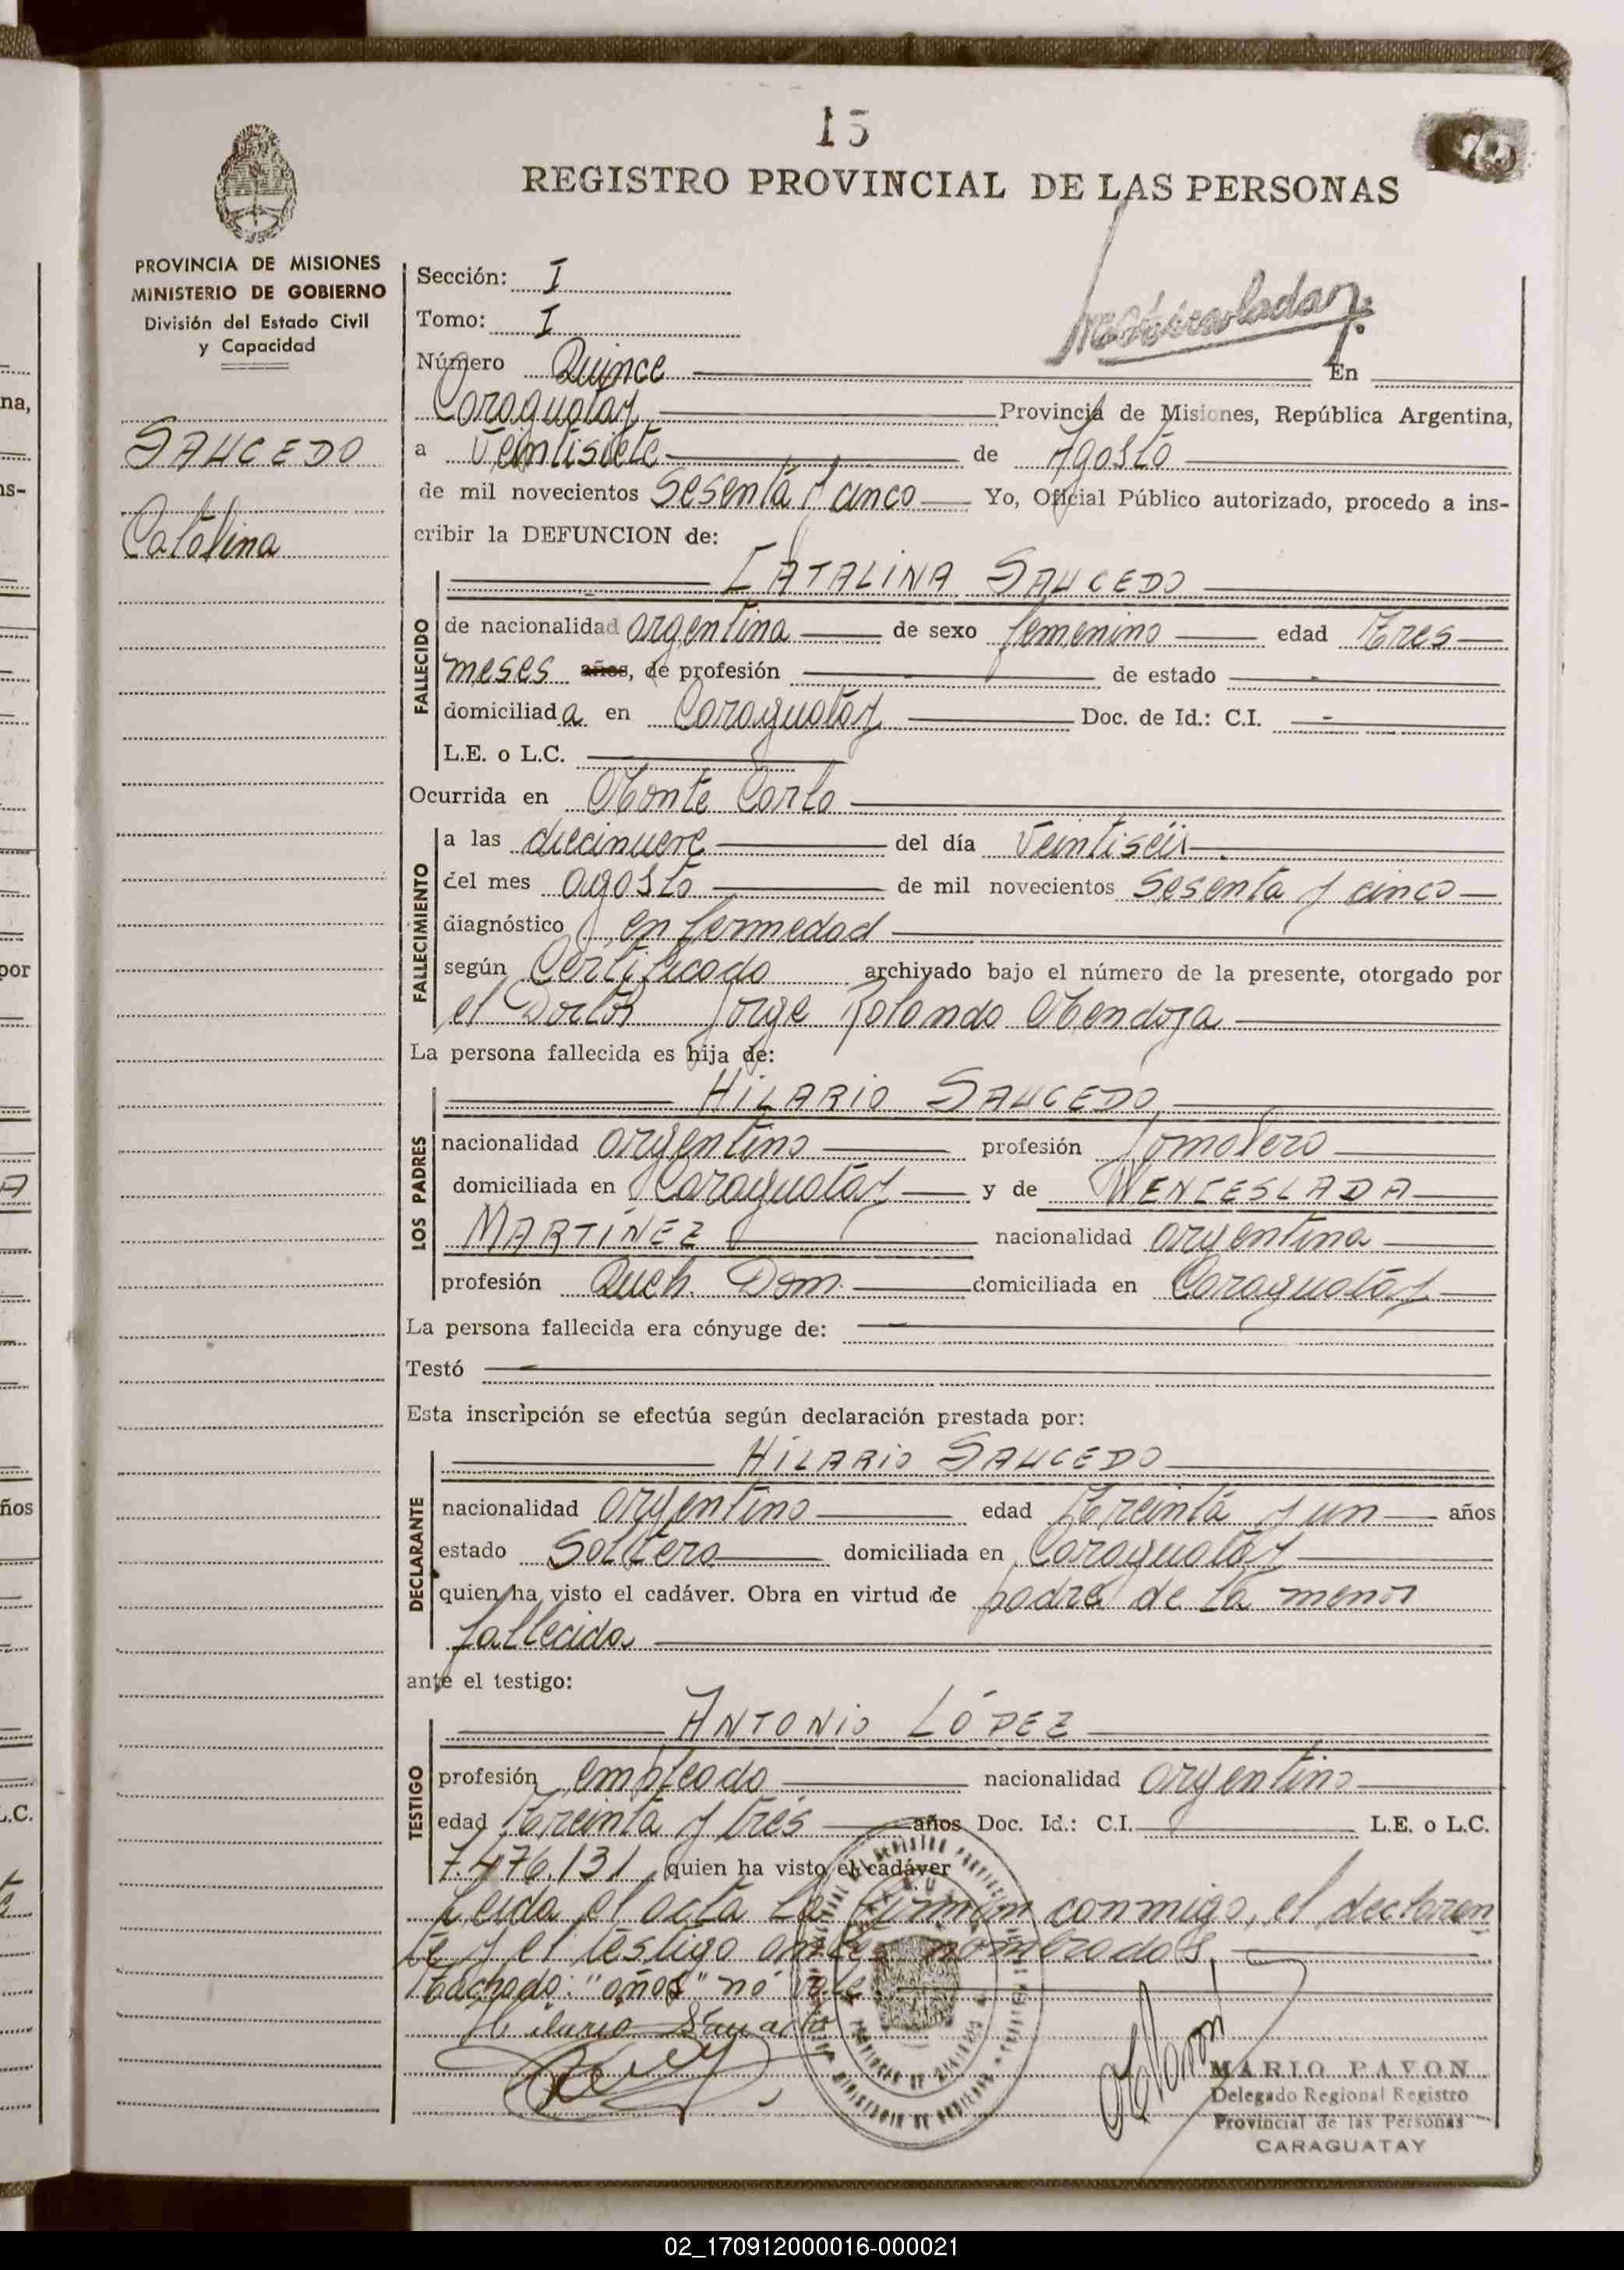 15
REGISTRO PROVINCIAL DE LAS PERSONAS
PROVINCIA DE MISIONES
MINISTERIO DE GOBIERNO
División del Estado Civil
y Capacidad
SAUCEDO
Catalina
Sección: I
Tomo: I
Número Quince En
Caraguatay Provincia de Misiones, República Argentina,
a veintisiete de Agosto
de mil novecientos sesenta y cinco Yo, Oficial Público autorizado, procedo a ins-
cribir la DEFUNCION de:
CATALINA SAUCEDO
FALLECIDO
de nacionalidad argentina de sexo femenino edad Tres
meses años, de profesión de estado
domiciliada en Caraguatay Doc. de Id.: C.I. -
L.E. o L.C.
Ocurrida en Monte Carlo
FALLECIMIENTO
a las diecinueve del día veintiséis
del mes agosto de mil novecientos sesenta y cinco
diagnóstico enfermedad
según Certificado archivado bajo el número de la presente, otorgado por
el Doctor Jorge Rolando Mendoza
La persona fallecida es hija de:
HILARIO SAUCEDO
LOS PADRES
nacionalidad argentino profesión Jornalero
domiciliada en Caraguatay y de WENCESLADA
MARTÍNEZ nacionalidad argentina
profesión Queh. Dom. domiciliada en Caraguatay
La persona fallecida era cónyuge de:
Testó
Esta inscripción se efectúa según declaración prestada por:
HILARIO SAUCEDO
DECLARANTE
nacionalidad argentino edad Treinta y un años
estado Soltero domiciliada en Caraguatay
quien ha visto el cadáver. Obra en virtud de padre de la menor
fallecida
ante el testigo:
ANTONIO LÓPEZ
TESTIGO
profesión empleado nacionalidad argentino
edad Treinta y tres años Doc. Id.: C.I. L.E. o L.C.
7.476.131 quien ha visto el cadáver
Leída el acta la firman conmigo, el declaran
te y el testigo antes nombrados.
Tachado: "años" no vale
Hilario
MARIO PAVON
Delegado Regional Registro
Provincial de las Personas
CARAGUATAY
02_170912000016-000021